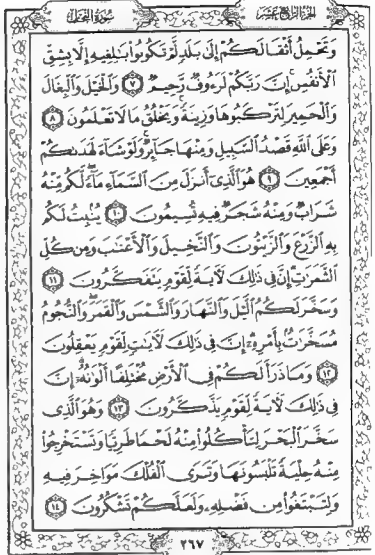 الجزء الرابع عشر سورة النحل
وَتَحْمِلُ أَثْقَالَكُمْ إِلَىٰ بَلَدٍ لَّمْ تَكُونُوا۟ بَـٰلِغِيهِ إِلَّا بِشِقِّ
ٱلْأَنفُسِ ۚ إِنَّ رَبَّكُمْ لَرَءُوفٌ رَّحِيمٌ ٧ وَٱلْخَيْلَ وَٱلْبِغَالَ
وَٱلْحَمِيرَ لِتَرْكَبُوهَا وَزِينَةً ۚ وَيَخْلُقُ مَا لَا تَعْلَمُونَ ٨
وَعَلَى ٱللَّهِ قَصْدُ ٱلسَّبِيلِ وَمِنْهَا جَآئِرٌ ۚ وَلَوْ شَآءَ لَهَدَىٰكُمْ
أَجْمَعِينَ ٩ هُوَ ٱلَّذِىٓ أَنزَلَ مِنَ ٱلسَّمَآءِ مَآءً ۖ لَّكُم مِّنْهُ
شَرَابٌ وَمِنْهُ شَجَرٌ فِيهِ تُسِيمُونَ ١٠ يُنۢبِتُ لَكُم
بِهِ ٱلزَّرْعَ وَٱلزَّيْتُونَ وَٱلنَّخِيلَ وَٱلْأَعْنَـٰبَ وَمِن كُلِّ
ٱلثَّمَرَٰتِ ۗ إِنَّ فِى ذَٰلِكَ لَـَٔايَةً لِّقَوْمٍ يَتَفَكَّرُونَ ١١
وَسَخَّرَ لَكُمُ ٱلَّيْلَ وَٱلنَّهَارَ وَٱلشَّمْسَ وَٱلْقَمَرَ ۖ وَٱلنُّجُومُ
مُسَخَّرَٰتٌۢ بِأَمْرِهِۦٓ ۗ إِنَّ فِى ذَٰلِكَ لَـَٔايَـٰتٍ لِّقَوْمٍ يَعْقِلُونَ
١٢ وَمَا ذَرَأَ لَكُمْ فِى ٱلْأَرْضِ مُخْتَلِفًا أَلْوَٰنُهُۥٓ ۗ إِنَّ
فِى ذَٰلِكَ لَـَٔايَةً لِّقَوْمٍ يَذَّكَّرُونَ ١٣ وَهُوَ ٱلَّذِى
سَخَّرَ ٱلْبَحْرَ لِتَأْكُلُوا۟ مِنْهُ لَحْمًا طَرِيًّا وَتَسْتَخْرِجُوا۟
مِنْهُ حِلْيَةً تَلْبَسُونَهَا وَتَرَى ٱلْفُلْكَ مَوَاخِرَ فِيهِ
وَلِتَبْتَغُوا۟ مِن فَضْلِهِۦ وَلَعَلَّكُمْ تَشْكُرُونَ ١٤
٢٦٧